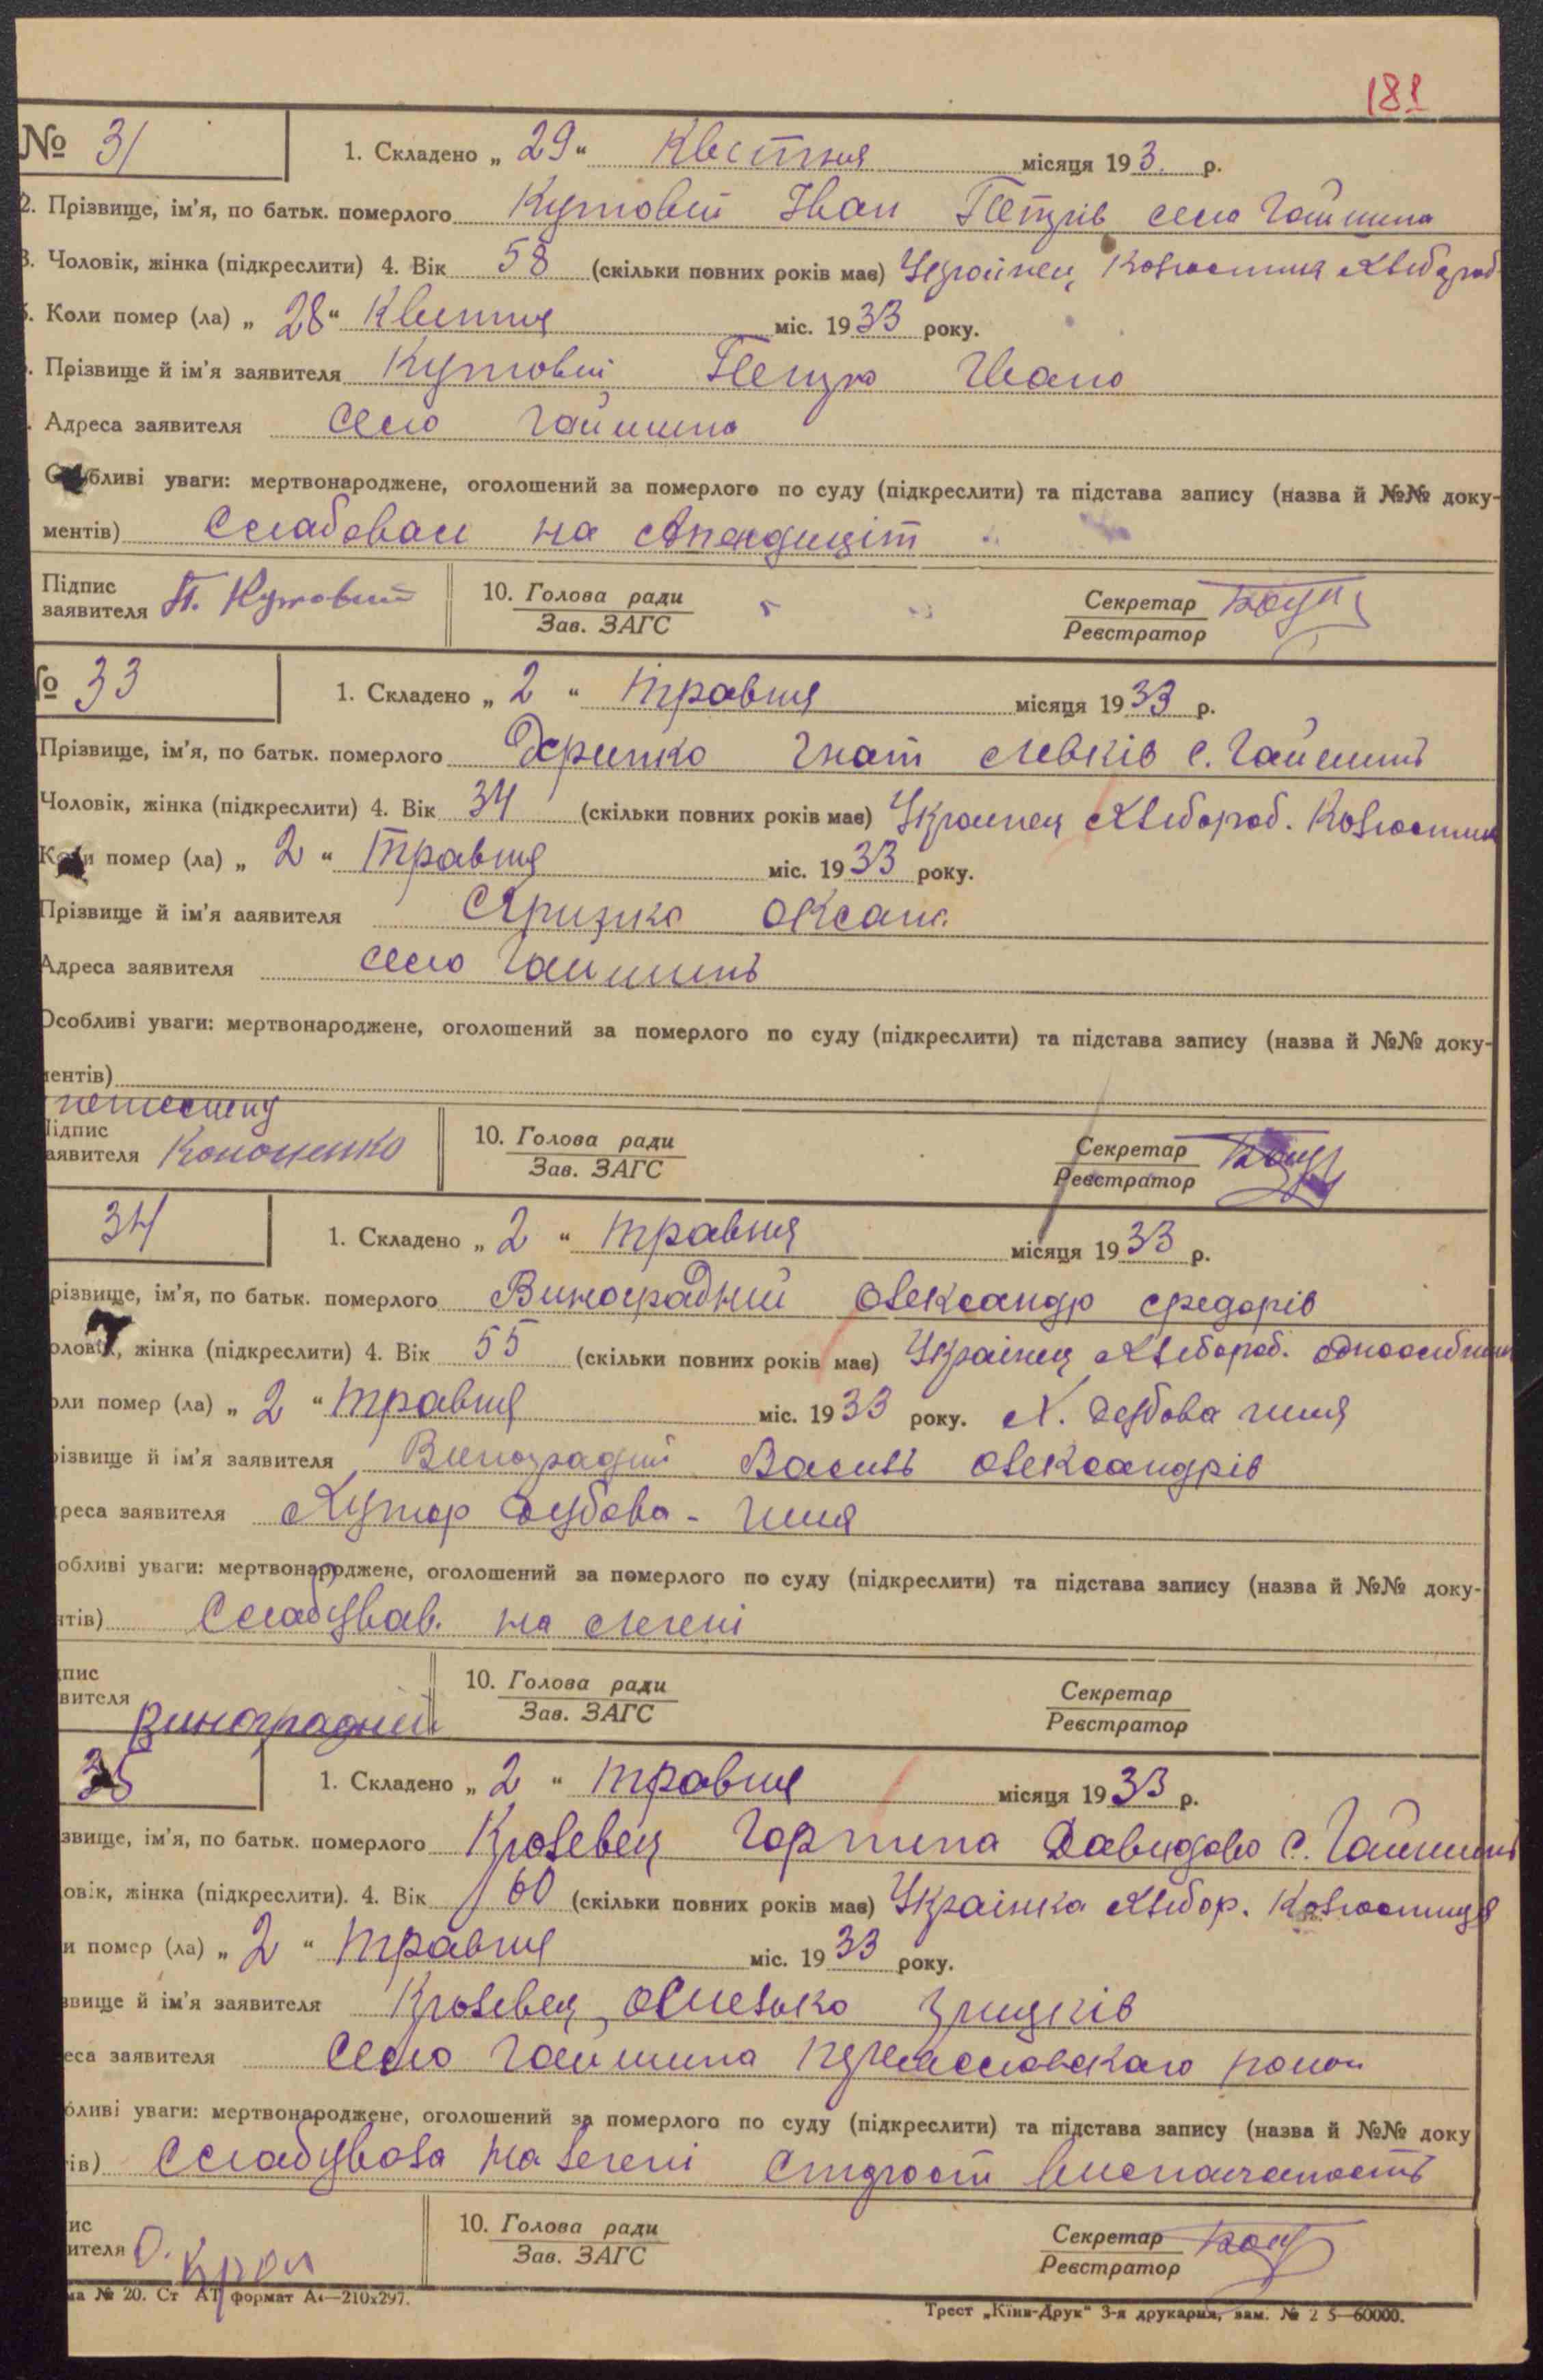 181
№ 31 1. Складено „ 29 “ Квітня місяця 193. р.
2. Прізвище, ім'я, по батьк. померлого Кутовий Іван Петрів село Гайшина
3. Чоловік, жінка (підкреслити) 4. Вік 58 (скільки повних років має) Украінец,
Коли помер (ла) „ 28 “ Квитня міс. 1933 року.
Прізвище й ім'я заявителя Кутовий Петро Івано
Адреса заявителя село Гайшина
бливі уваги: мертвонароджене, оголошений за померлого по суду (підкреслити) та підстава запису (назва й №№ доку-
ментів) на Апендицит
Підпис заявителя П. Кутовий 10. Голова ради Зав. ЗАГС Секретар Реєстратор
№ 33 1. Складено „ 2 “ травня місяця 1933 р.
Прізвище, ім'я, по батьк. померлого Гнат Левків с. Гайшинь
Чоловік, жінка (підкреслити) 4. Вік 34 (скільки повних років має) Украинец Хлібороб.
Коли помер (ла) „ 2 “ травня міс. 1933 року.
Прізвище й ім'я заявителя Оксана
Адреса заявителя село Гайшинь
Особливі уваги: мертвонароджене, оголошений за померлого по суду (підкреслити) та підстава запису (назва й №№ доку-
ментів)
Підпис
аявителя Кононенко 10. Голова ради Зав. ЗАГС Секретар Реєстратор
34 1. Складено „ 2 “ травня місяця 1933 р.
різвище, ім'я, по батьк. померлого Виноградний Олександр Федорів
оловік, жінка (підкреслити) 4. Вік 55 (скільки повних років має) Украінец Хлібороб.
оли помер (ла) „ 2 “ травня міс. 1933 року. Х.
різвище й ім'я заявителя Виноградний Василь Олександрів
реса заявителя Хутор
обливі уваги: мертвонароджене, оголошений за померлого по суду (підкреслити) та підстава запису (назва й №№ доку-
нтів) Слабував. на легені
пис
вителя Виноградний 10. Голова ради Зав. ЗАГС Секретар Реєстратор
35 1. Складено „ 2 “ травня місяця 1933 р.
звище, ім'я, по батьк. померлого Кролевец Горпина Давидово с. Гайшинь
овік, жінка (підкреслити). 4. Вік 60 (скільки повних років має) Украінка Хлібор.
и помер (ла) „ 2 “ травня міс. 1933 року.
звище й ім'я заявителя Кролевец Грицків
еса заявителя село Гайшина
бливі уваги: мертвонароджене, оголошений за померлого по суду (підкреслити) та підстава запису (назва й №№ доку
ів) Слабувала на легені
ис
ителя О. Крол 10. Голова ради Зав. ЗАГС Секретар Реєстратор
ма № 20. Ст АТ формат А4—210х297.
Трест „Київ-Друк“ 3-я друкарня, зам. № 2 5—60000.